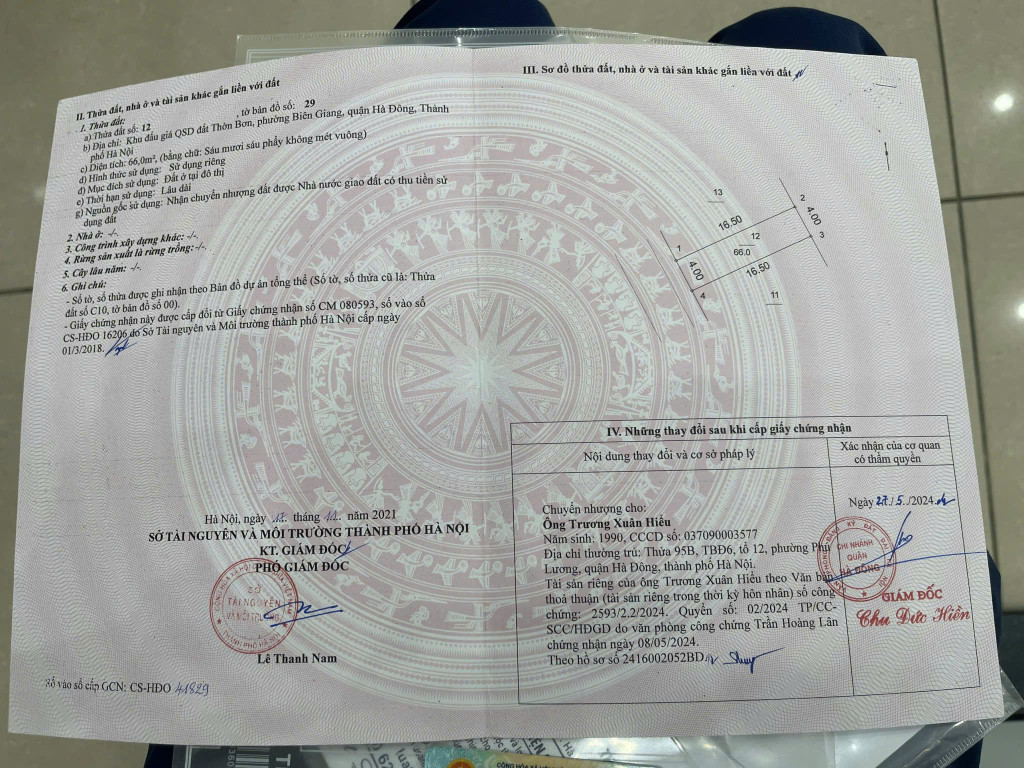 II. Thửa đất, nhà ở và tài sản khác gắn liền với đất
1. Thửa đất:
a) Thửa đất số: 12 , tờ bản đồ số: 29
b) Địa chỉ: Khu đấu giá QSD đất Thôn Bơn, phường Biên Giang, quận Hà Đông, Thành
phố Hà Nội
c) Diện tích: 66,0m², (bằng chữ: Sáu mươi sáu phẩy không mét vuông)
d) Hình thức sử dụng: Sử dụng riêng
đ) Mục đích sử dụng: Đất ở tại đô thị
e) Thời hạn sử dụng: Lâu dài
g) Nguồn gốc sử dụng: Nhận chuyển nhượng đất được Nhà nước giao đất có thu tiền sử
dụng đất
2. Nhà ở: -/-.
3. Công trình xây dựng khác: -/-.
4. Rừng sản xuất là rừng trồng: -/-.
5. Cây lâu năm: -/-.
6. Ghi chú:
- Số tờ, số thửa được ghi nhận theo Bản đồ dự án tổng thể (Số tờ, số thửa cũ là: Thửa
đất số C10, tờ bản đồ số 00).
- Giấy chứng nhận này được cấp đổi từ Giấy chứng nhận số CM 080593, số vào sổ
CS-HĐO 16206 do Sở Tài nguyên và Môi trường thành phố Hà Nội cấp ngày
01/3/2018.
Hà Nội, ngày tháng năm 2021
SỞ TÀI NGUYÊN VÀ MÔI TRƯỜNG THÀNH PHỐ HÀ NỘI
KT. GIÁM ĐỐC
PHÓ GIÁM ĐỐC
SỞ
TÀI NGUYÊN
Lê Thanh Nam
Số vào sổ cấp GCN: CS-HĐO 41829
III. Sơ đồ thửa đất, nhà ở và tài sản khác gắn liền với đất
13
2
16.50
4.00
12
3
1
66.0
4.00
16.50
4
11
IV. Những thay đổi sau khi cấp giấy chứng nhận
Nội dung thay đổi và cơ sở pháp lý
Xác nhận của cơ quan
có thẩm quyền
Chuyển nhượng cho:
Ông Trương Xuân Hiếu
Năm sinh: 1990, CCCD số: 037090003577
Địa chỉ thường trú: Thửa 95B, TBĐ6, tổ 12, phường Phú
Lương, quận Hà Đông, thành phố Hà Nội.
Tài sản riêng của ông Trương Xuân Hiếu theo Văn bản
thoả thuận (tài sản riêng trong thời kỳ hôn nhân) số công
chứng: 2593/2.2/2024. Quyển số: 02/2024 TP/CC-
SCC/HĐGD do văn phòng công chứng Trần Hoàng Lân
chứng nhận ngày 08/05/2024.
Theo hồ sơ số 2416002052BD.
Ngày 27/5/2024
CHI NHÁNH
QUẬN
HÀ ĐÔNG
GIÁM ĐỐC
Chu Đức Hiền